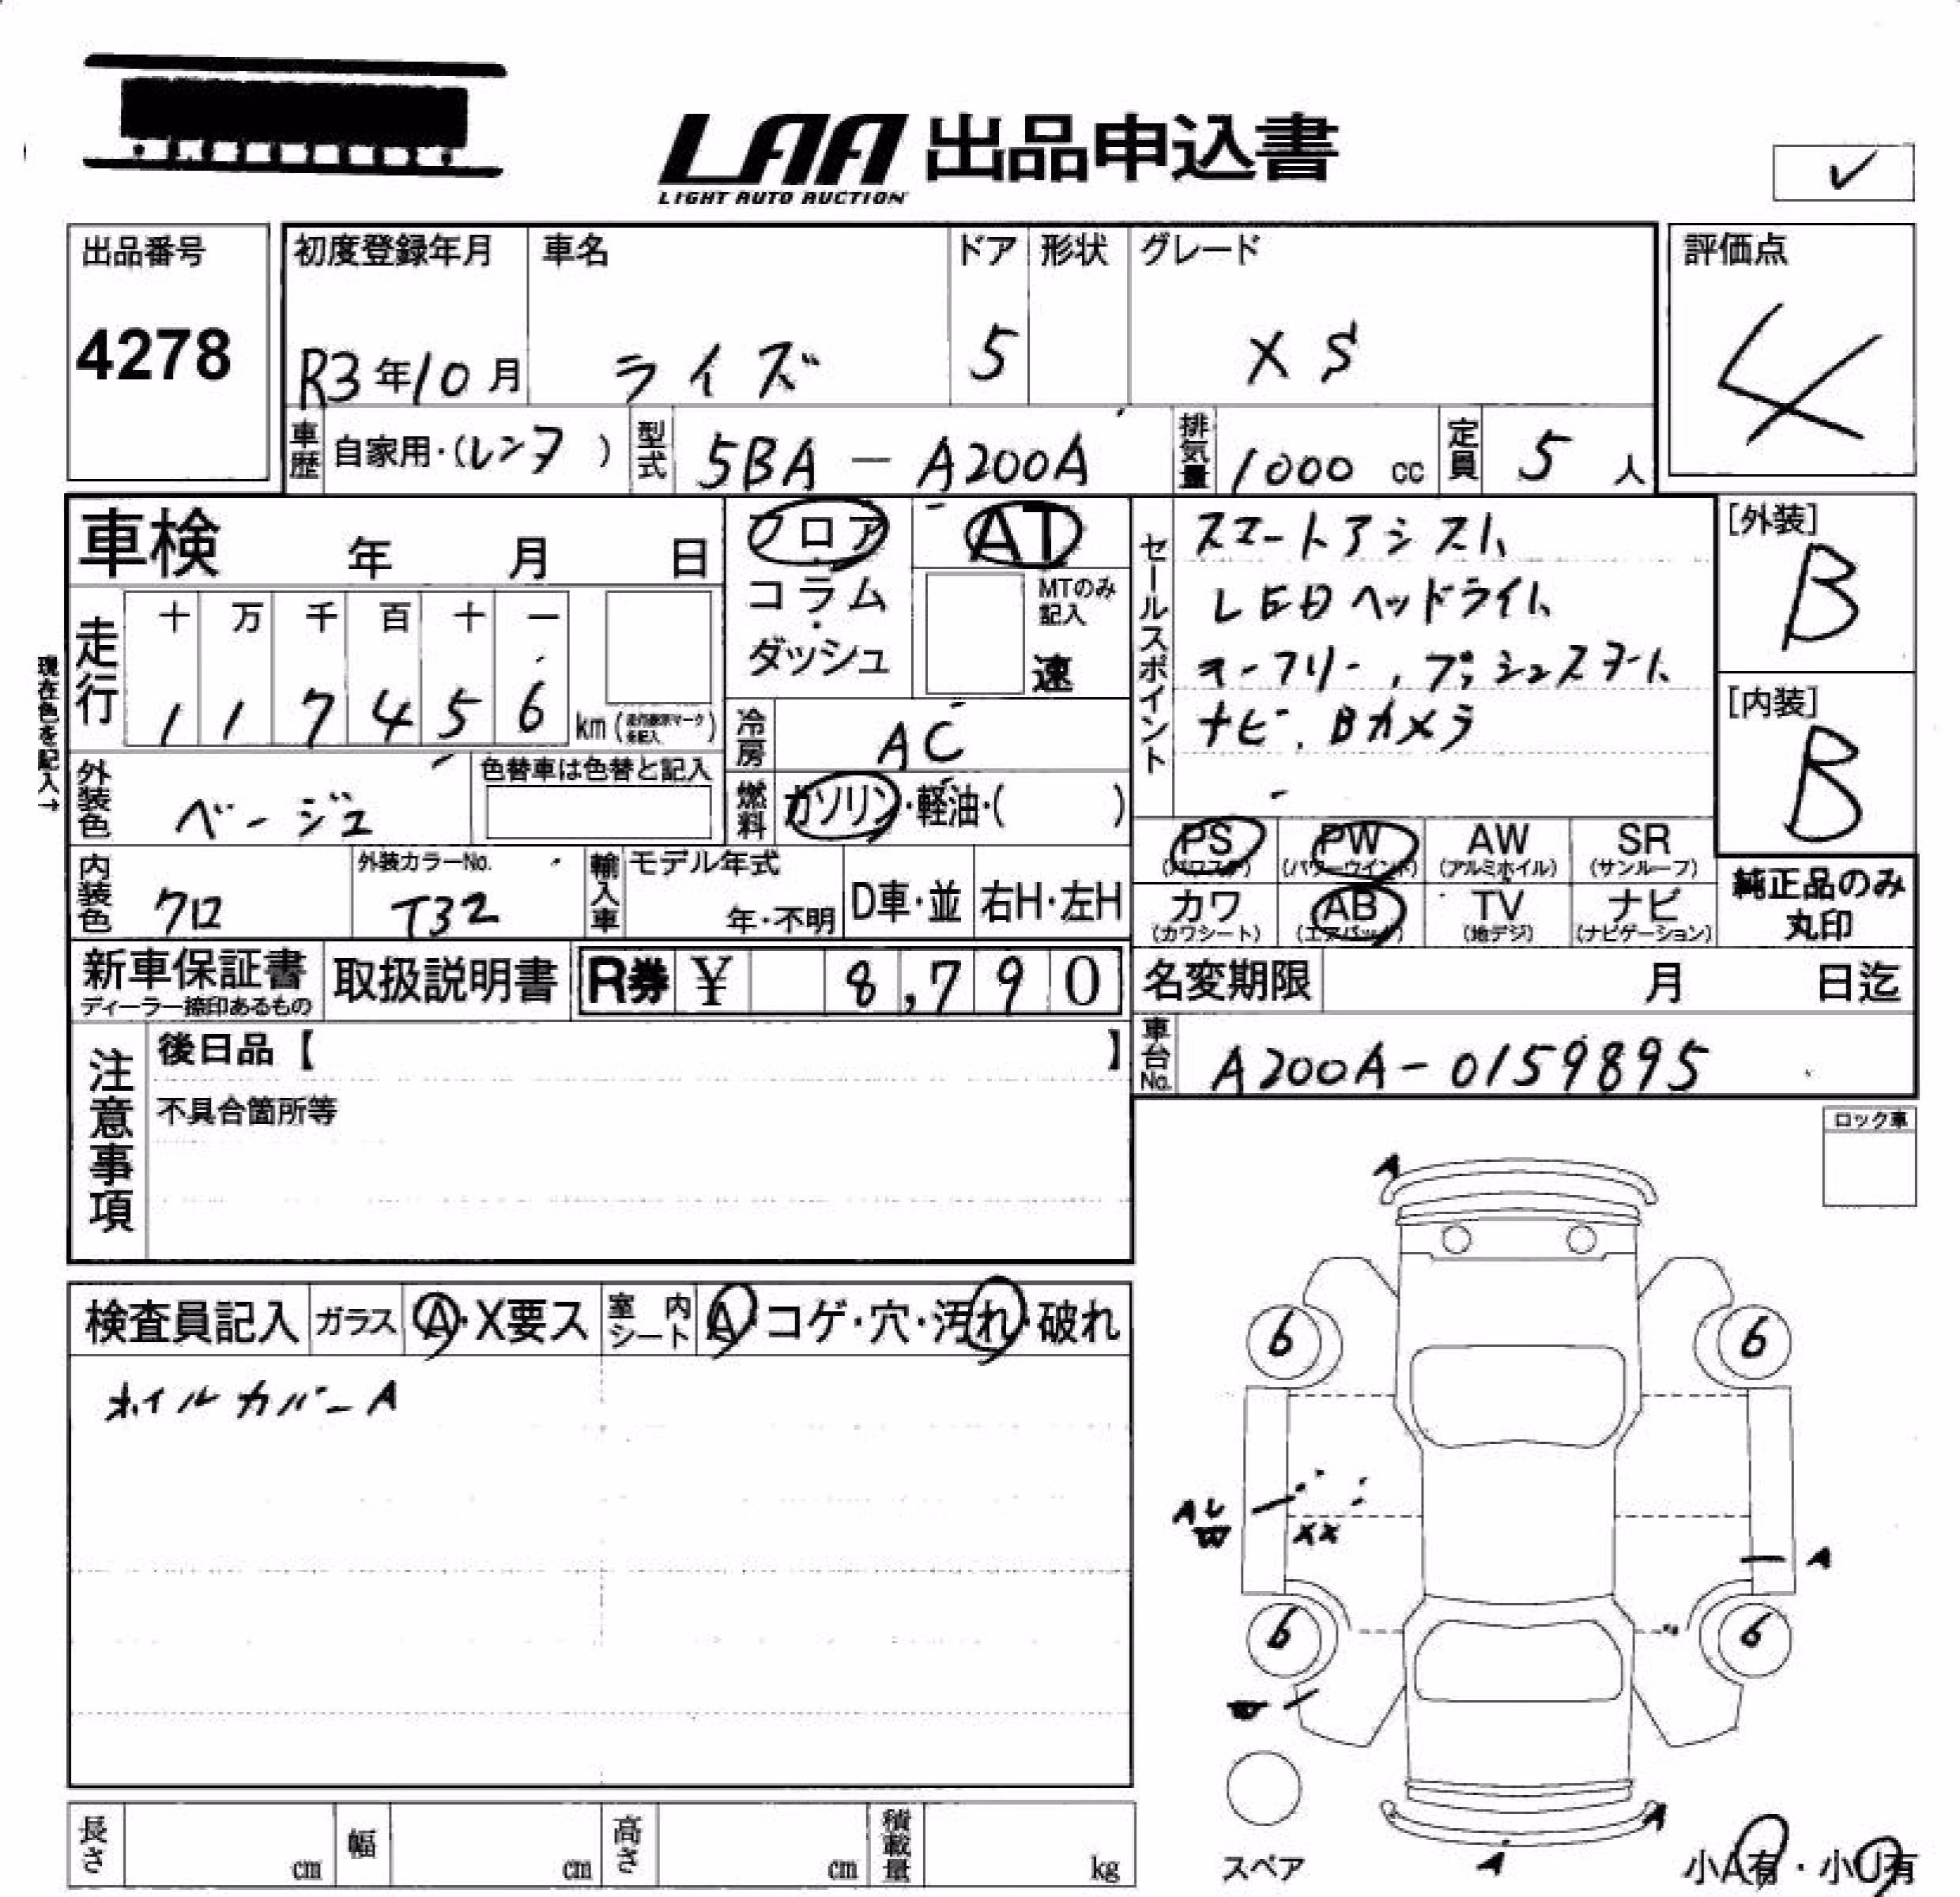 LAA 出品申込書
LIGHT AUTO AUCTION
✓
出品番号
4278
初度登録年月
R3年10月
車名
ライズ
ドア
5
形状
グレード
XS
評価点
4
車歴
自家用・(レンタ )
型式
5BA-A200A
排気量
1000 cc
定員
5 人
車検 年 月 日
フロア
コラム
・
ダッシュ
AT
MTのみ
記入
速
セールスポイント
スマートアシスト
LEDヘッドライト
キーフリー,プッシュスタート
ナビ,Bカメラ
[外装]
B
[内装]
B
現在色を記入→
走行
十 万 千 百 十 一
1 1 7 4 5 6
km
冷房
AC
外装色
ベージュ
色替車は色替と記入
燃料
ガソリン・軽油・( )
PS
(パワステ)
PW
(パワーウインド)
AW
(アルミホイル)
SR
(サンルーフ)
内装色
クロ
外装カラーNo.
T32
輸入車
モデル年式
年・不明
D車・並
右H・左H
カワ
(カワシート)
AB
(エアバッグ)
TV
(地デジ)
ナビ
(ナビゲーション)
純正品のみ
丸印
新車保証書
ディーラー捺印あるもの
取扱説明書
R券 ¥ 8,790
名変期限 月 日迄
注意事項
後日品【 】
不具合箇所等
車台No.
A200A-0159895
ロック車
検査員記入
ガラス
A・X要ス
室内シート
A・コゲ・穴・汚れ・破れ
ホイルカバーA
A
6 6
AU
W
XX
A
6 6
W
A
A
スペア
小A有・小U有
長さ cm
幅 cm
高さ cm
積載量 kg